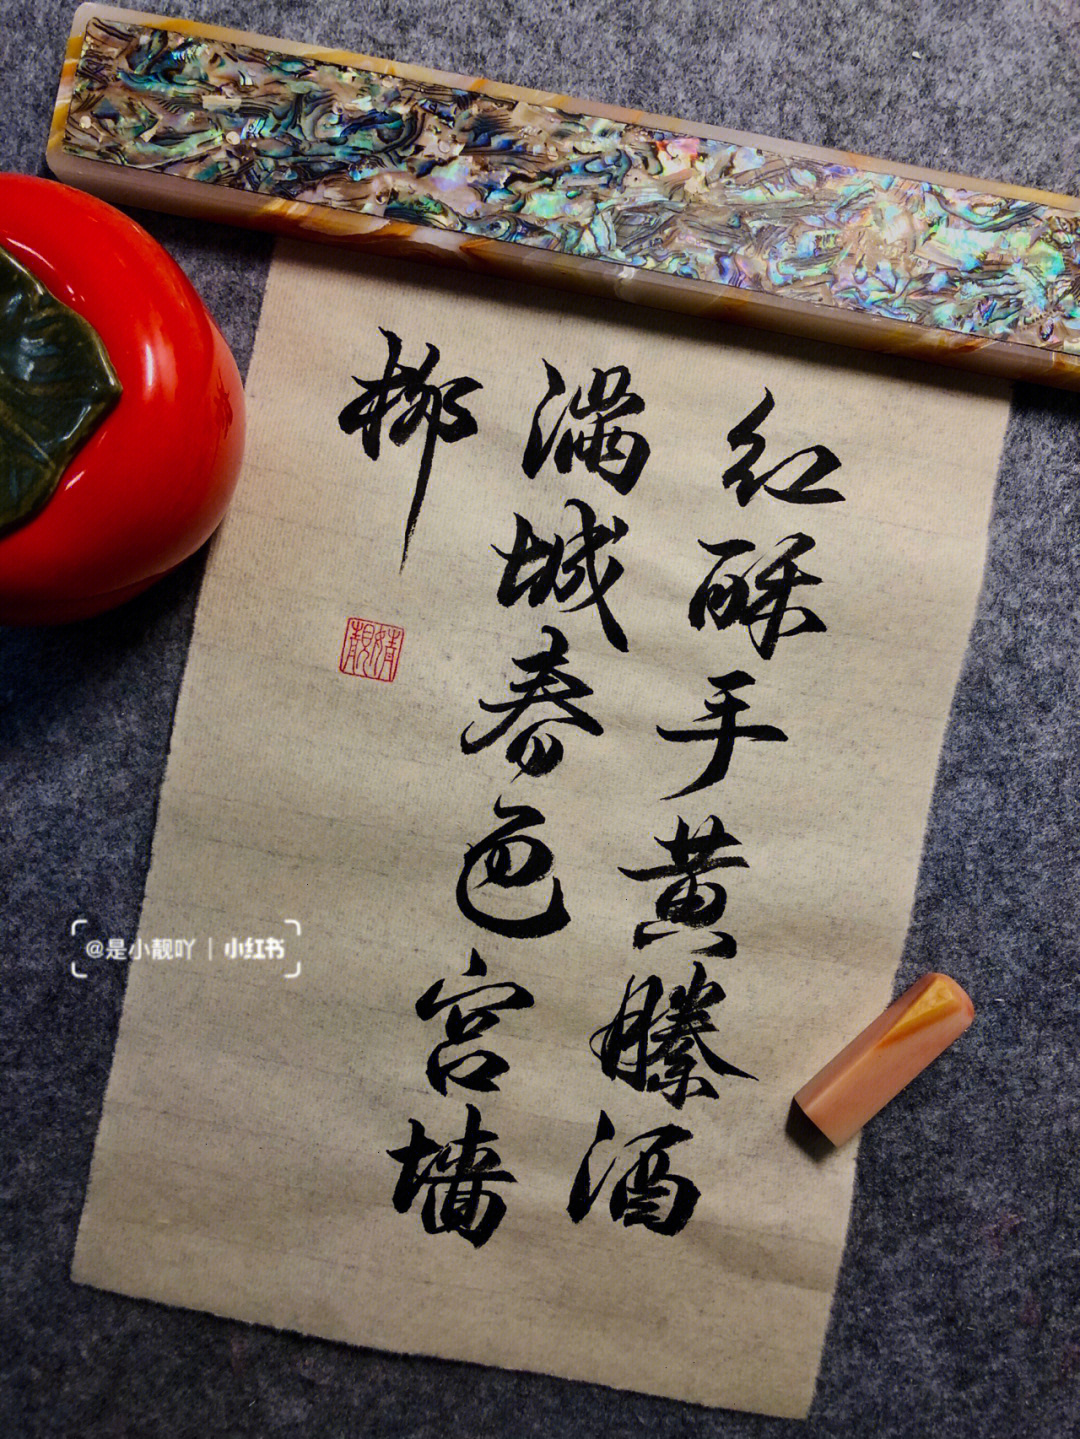 红酥手黄縢酒
满城春色宫墙
柳
婧靓
@是小靓吖 | 小红书